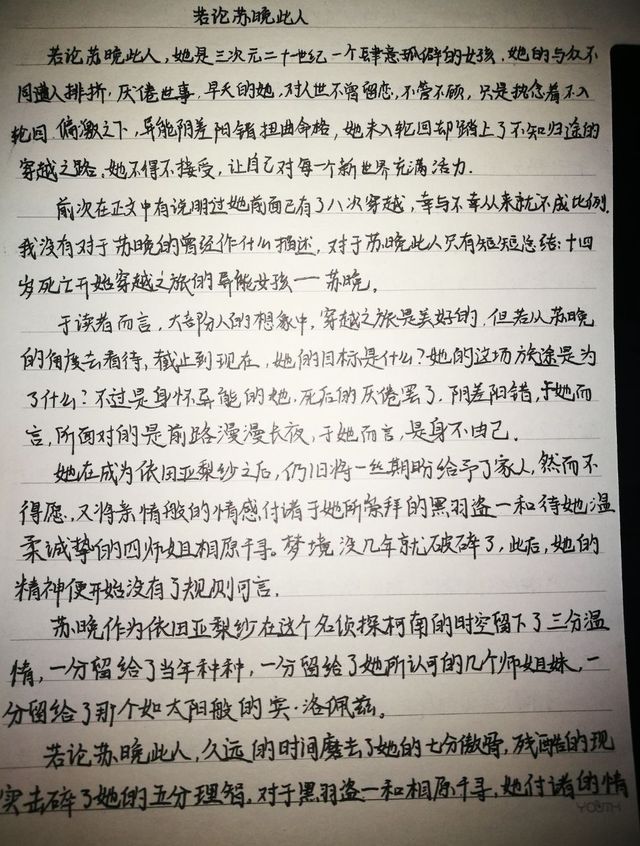 若论苏晚此人
若论苏晚此人，她是三次元二十世纪一个肆意孤僻的女孩，她的与众不
同遭人排挤，厌倦世事，早夭的她，对人世不曾留恋，不管不顾，只是执念着不入
轮回，偏激之下，异能阴差阳错扭曲命格，她未入轮回却踏上了不知归途的
穿越之路。她不得不接受，让自己对每一个新世界充满活力.
前次在正文中有说明过她前面已有了八次穿越，幸与不幸从来就不成比例.
我没有对于苏晚的曾经作什么描述，对于苏晚此人只有短短总结：十四
岁死亡开始穿越之旅的异能女孩——苏晚。
于读者而言，大部份人的想象中，穿越之旅是美好的，但若从苏晚
的角度去看待，截止到现在，她的目标是什么？她的这场旅途是为
了什么？不过是身怀异能的她，死后的厌倦罢了，阴差阳错，于她而
言，所面对的是前路漫漫长夜，于她而言，是身不由己.
她在成为依田亚梨纱之后，仍旧将一丝期盼给予了家人，然而不
得愿，又将亲情般的情感付诸于她所崇拜的黑羽盗一和待她温
柔诚挚的四师姐相原千寻。梦境没几年就破碎了，此后，她的
精神便开始没有了规则可言.
苏晚作为依田亚梨纱在这个名侦探柯南的时空留下了三分温
情，一分留给了当年种种，一分留给了她所认可的几个师姐妹，一
分留给了那个如太阳般的宾·洛佩兹。
若论苏晚此人，久远的时间磨去了她的七分傲骨，残酷的现
实击碎了她的五分理智，对于黑羽盗一和相原千寻，她付诸的情
YOUTH